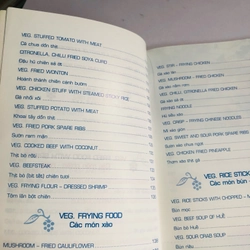 VEG. STUFFED TOMATO WITH MEAT
Cà chua dồn thịt
CITRONELLA, CHILLI FRIED SOYA CURD
Đậu hủ chiên sả ớt
VEG. FRIED WONTON
Hoành thánh chiên
VEG. CHICKEN STUFF WITH STEAMED STICKY RICE
Gà nhồi xôi
VEG. STUFFED POTATO WITH MEAT
Khoai tây dồn thịt
VEG. FRIED PORK SPARE RIBS
Sườn ram mặn
VEG. COOKED BEEF WITH COCONUT
Thịt bò
VEG. BEEFSTEAK
Thịt bò bít tết chiên tươi
VEG. FRYING FLOUR - DRESSED SHRIMP
Tôm lăn bột chiên
VEG. FRYING FOOD
Các món xào
MUSHROOM - FRIED CAULIFLOWER
VEG. FRYING CHICKEN
Gà xào
VEG. MUSHROOM - FRIED CHICKEN
Gà xào nấm
VEG. CHILLI, CITRONELLA FRIED CHICKEN
FRYING NOODLE
VEG. CRISP - FRYING CHINESE NOODLES
VEG. SWEET AND SOUR PORK SPARE RIBS
VEG. CHICKEN FRIED PINEAPPLE
Thơm xào thịt gà
VEG. RICE STICKS
Các món bún
RICE STICKS WITH CHOPPED
VEG. BEEF SOUP OF HUẾ
Bún bò Huế
VEG. SOUR CRAB SOUP